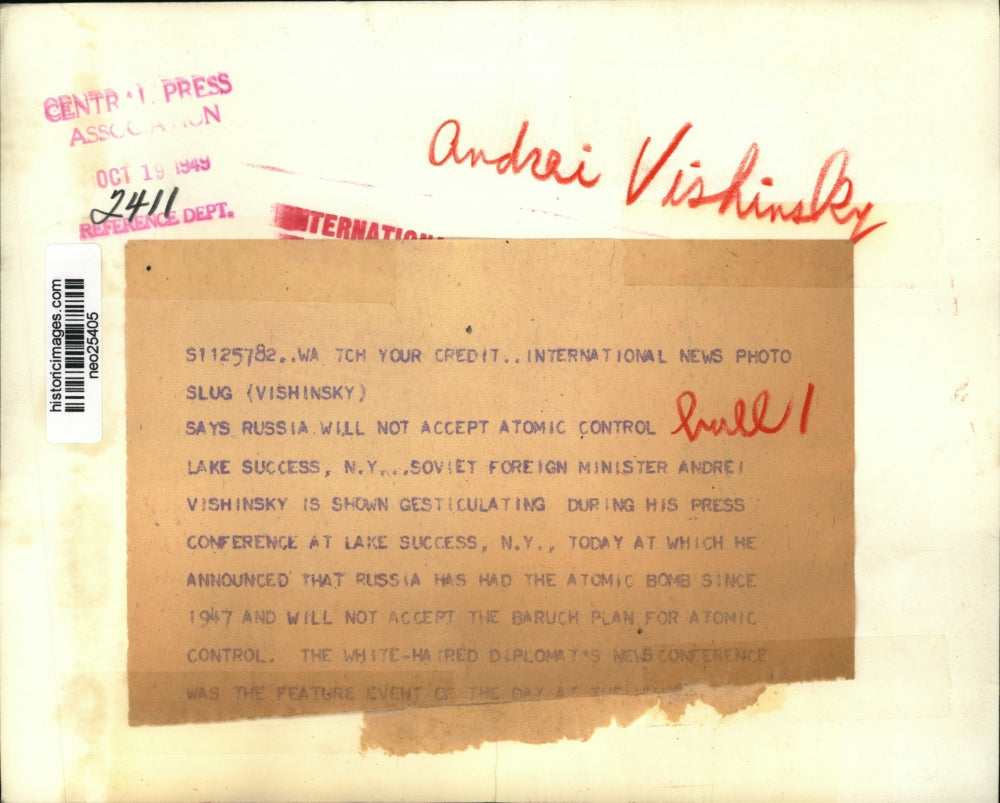 CENTRAL PRESS
ASSOCIATION
OCT 19 1949
2411
REFERENCE DEPT.
Andrei Vishinsky
INTERNATIONAL
historicimages.com
neo25405
S1125782..WA TCH YOUR CREDIT..INTERNATIONAL NEWS PHOTO
SLUG (VISHINSKY)
SAYS RUSSIA WILL NOT ACCEPT ATOMIC CONTROL
LAKE SUCCESS, N.Y...SOVIET FOREIGN MINISTER ANDREI
VISHINSKY IS SHOWN GESTICULATING DURING HIS PRESS
CONFERENCE AT LAKE SUCCESS, N.Y., TODAY AT WHICH HE
ANNOUNCED THAT RUSSIA HAS HAD THE ATOMIC BOMB SINCE
1947 AND WILL NOT ACCEPT THE BARUCH PLAN FOR ATOMIC
CONTROL. THE WHITE-HAIRED DIPLOMAT'S NEWS CONFERENCE
WAS THE FEATURE EVENT OF THE DAY AT THE